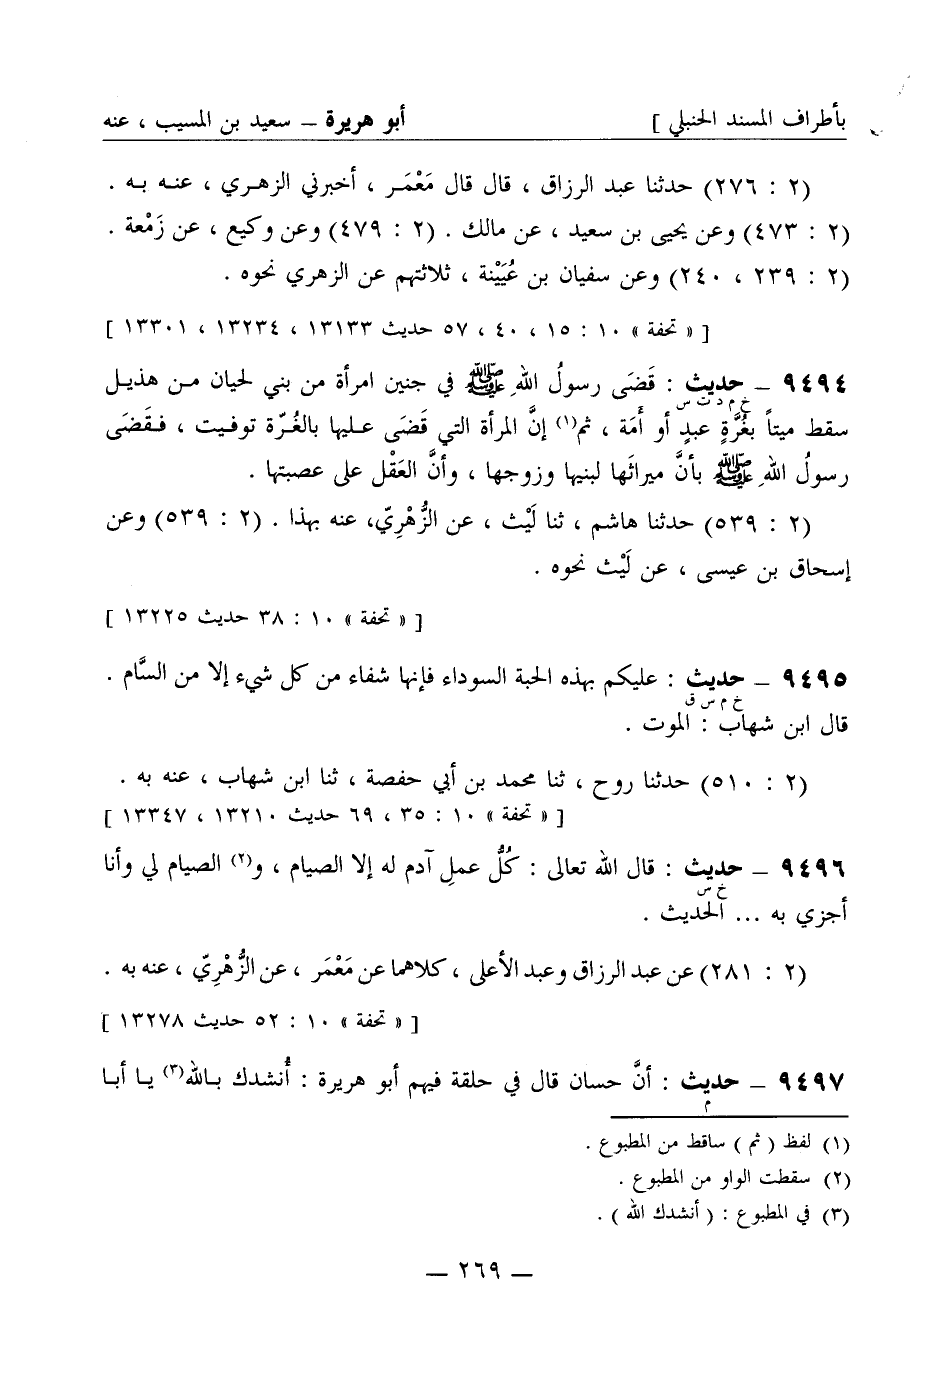 بأطراف المسند الحنبلي ] أبو هريرة ــ سعيد بن المسيب ، عنه
(٢ : ٢٧٦) حدثنا عبد الرزاق ، قال قال مَعْمَر ، أخبرني الزهري ، عنه به .
(٢ : ٤٧٣) وعن يحيى بن سعيد ، عن مالك . (٢ : ٤٧٩) وعن وكيع ، عن زَمْعة .
(٢ : ٢٣٩ ، ٢٤٠) وعن سفيان بن عُيَيْنة ، ثلاثتهم عن الزهري نحوه .
[ « تحفة » ١٠ : ١٥ ، ٤٠ ، ٥٧ حديث ١٣١٣٣ ، ١٣٢٣٤ ، ١٣٣٠١ ]
٩٤٩٤ ــ حديث : قَضَى رسولُ اللهِ ﷺ في جنين امرأة من بني لحيان من هذيل
خ م د ت س
سقط ميتاً بغُرَّةٍ عبدٍ أو أَمَة ، ثم(١) إنَّ المرأة التي قَضَى عليها بالغُرّة توفيت ، فقَضَى
رسولُ اللهِ ﷺ بأنَّ ميراثَها لبنيها وزوجها ، وأنَّ العَقْل على عصبتها .
(٢ : ٥٣٩) حدثنا هاشم ، ثنا لَيْث ، عن الزُّهْرِيّ، عنه بهذا . (٢ : ٥٣٩) وعن
إسحاق بن عيسى ، عن لَيْث نحوه .
[ « تحفة » ١٠ : ٣٨ حديث ١٣٢٢٥ ]
٩٤٩٥ ــ حديث : عليكم بهذه الحبة السوداء فإنها شفاء من كل شيء إلا من السَّام .
خ م س ق
قال ابن شهاب : الموت .
(٢ : ٥١٠) حدثنا روح ، ثنا محمد بن أبي حفصة ، ثنا ابن شهاب ، عنه به .
[ « تحفة » ١٠ : ٣٥ ، ٦٩ حديث ١٣٢١٠ ، ١٣٣٤٧ ]
٩٤٩٦ ــ حديث : قال الله تعالى : كُلُّ عملِ آدم له إلا الصيام ، و(٢) الصيام لي وأنا
خ س
أجزي به ... الحديث .
(٢ : ٢٨١) عن عبد الرزاق وعبد الأعلى ، كلاهما عن مَعْمَر ، عن الزُّهْرِيّ ، عنه به .
[ « تحفة » ١٠ : ٥٢ حديث ١٣٢٧٨ ]
٩٤٩٧ ــ حديث : أنَّ حسان قال في حلقة فيهم أبو هريرة : أُنشدك بالله(٣) يا أبا
م
(١) لفظ ( ثم ) ساقط من المطبوع .
(٢) سقطت الواو من المطبوع .
(٣) في المطبوع : ( أنشدك الله ) .
ــ ٢٦٩ ــ